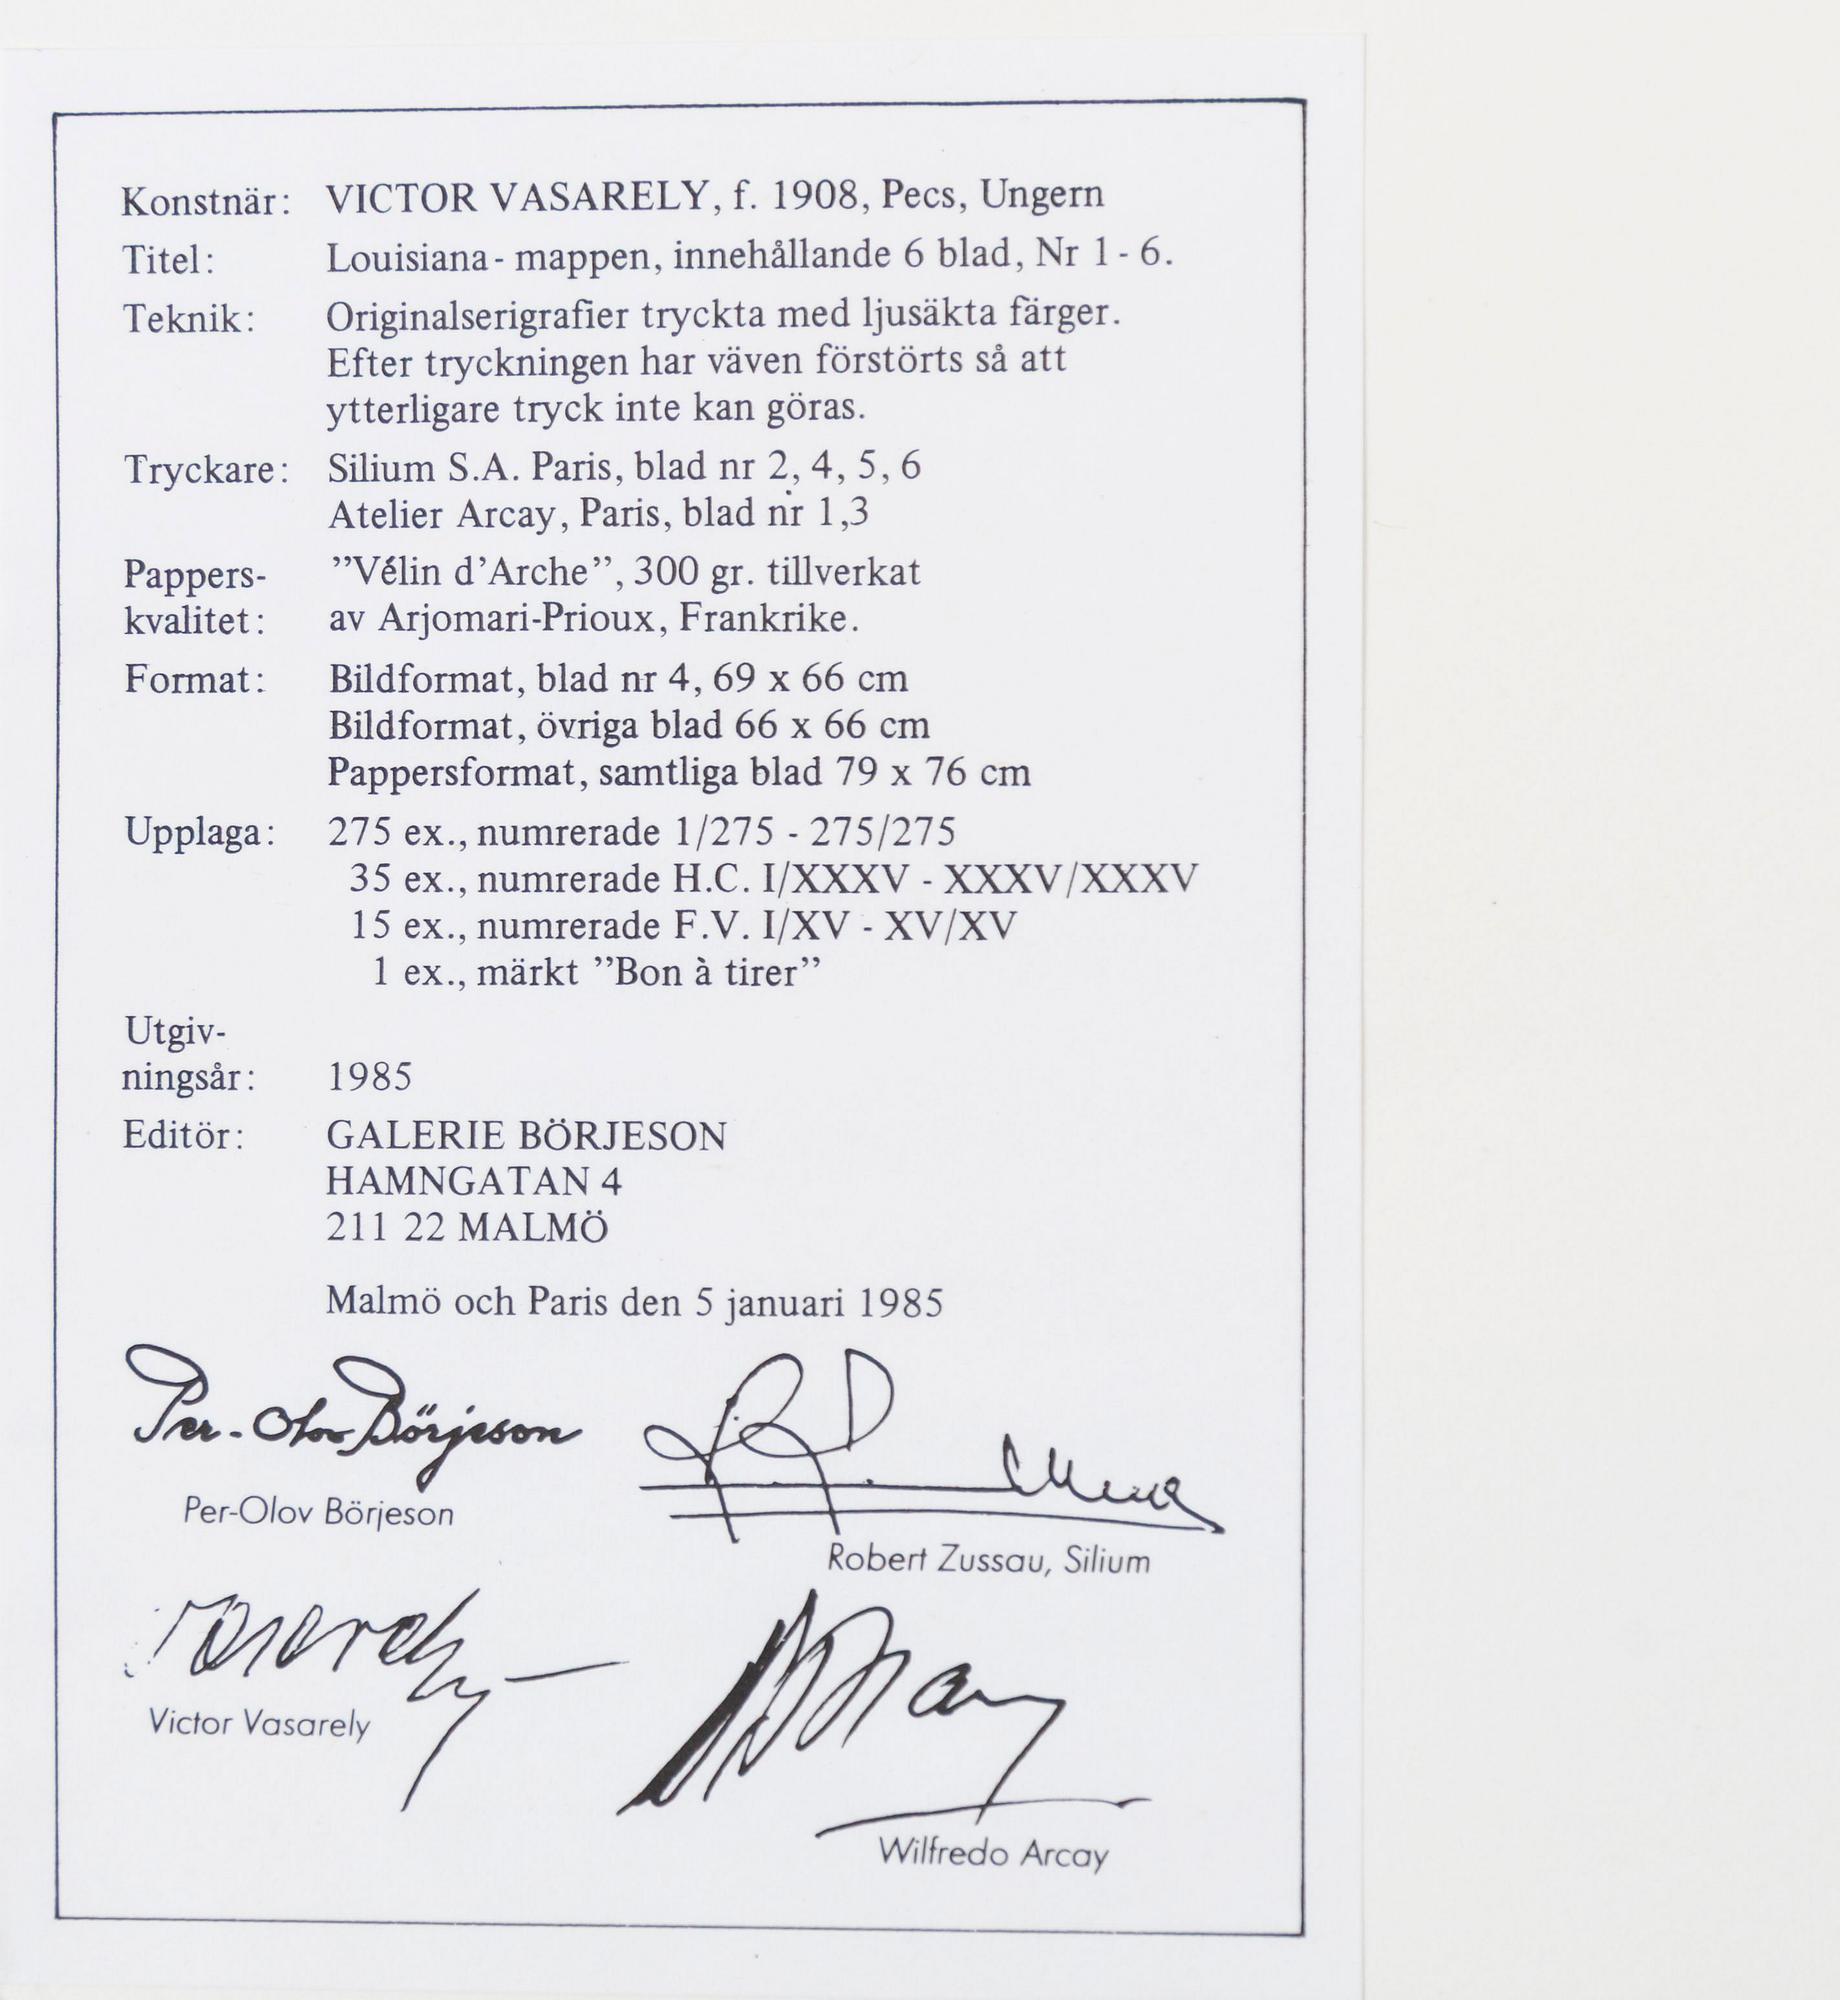 Konstnär: VICTOR VASARELY, f. 1908, Pecs, Ungern
Titel: Louisiana- mappen, innehållande 6 blad, Nr 1 - 6.
Teknik: Originalserigrafier tryckta med ljusäkta färger.
Efter tryckningen har väven förstörts så att
ytterligare tryck inte kan göras.
Tryckare: Silium S.A. Paris, blad nr 2, 4, 5, 6
Atelier Arcay, Paris, blad nr 1,3
Pappers- ”Vélin d’Arche”, 300 gr. tillverkat
kvalitet: av Arjomari-Prioux, Frankrike.
Format: Bildformat, blad nr 4, 69 x 66 cm
Bildformat, övriga blad 66 x 66 cm
Pappersformat, samtliga blad 79 x 76 cm
Upplaga: 275 ex., numrerade 1/275 - 275/275
35 ex., numrerade H.C. I/XXXV - XXXV/XXXV
15 ex., numrerade F.V. I/XV - XV/XV
1 ex., märkt ”Bon à tirer”
Utgiv-
ningsår: 1985
Editör: GALERIE BÖRJESON
HAMNGATAN 4
211 22 MALMÖ
Malmö och Paris den 5 januari 1985
Per-Olov Börjeson
Per-Olov Börjeson
Robert Zussau, Silium
Vasarely
Victor Vasarely
Wilfredo Arcay